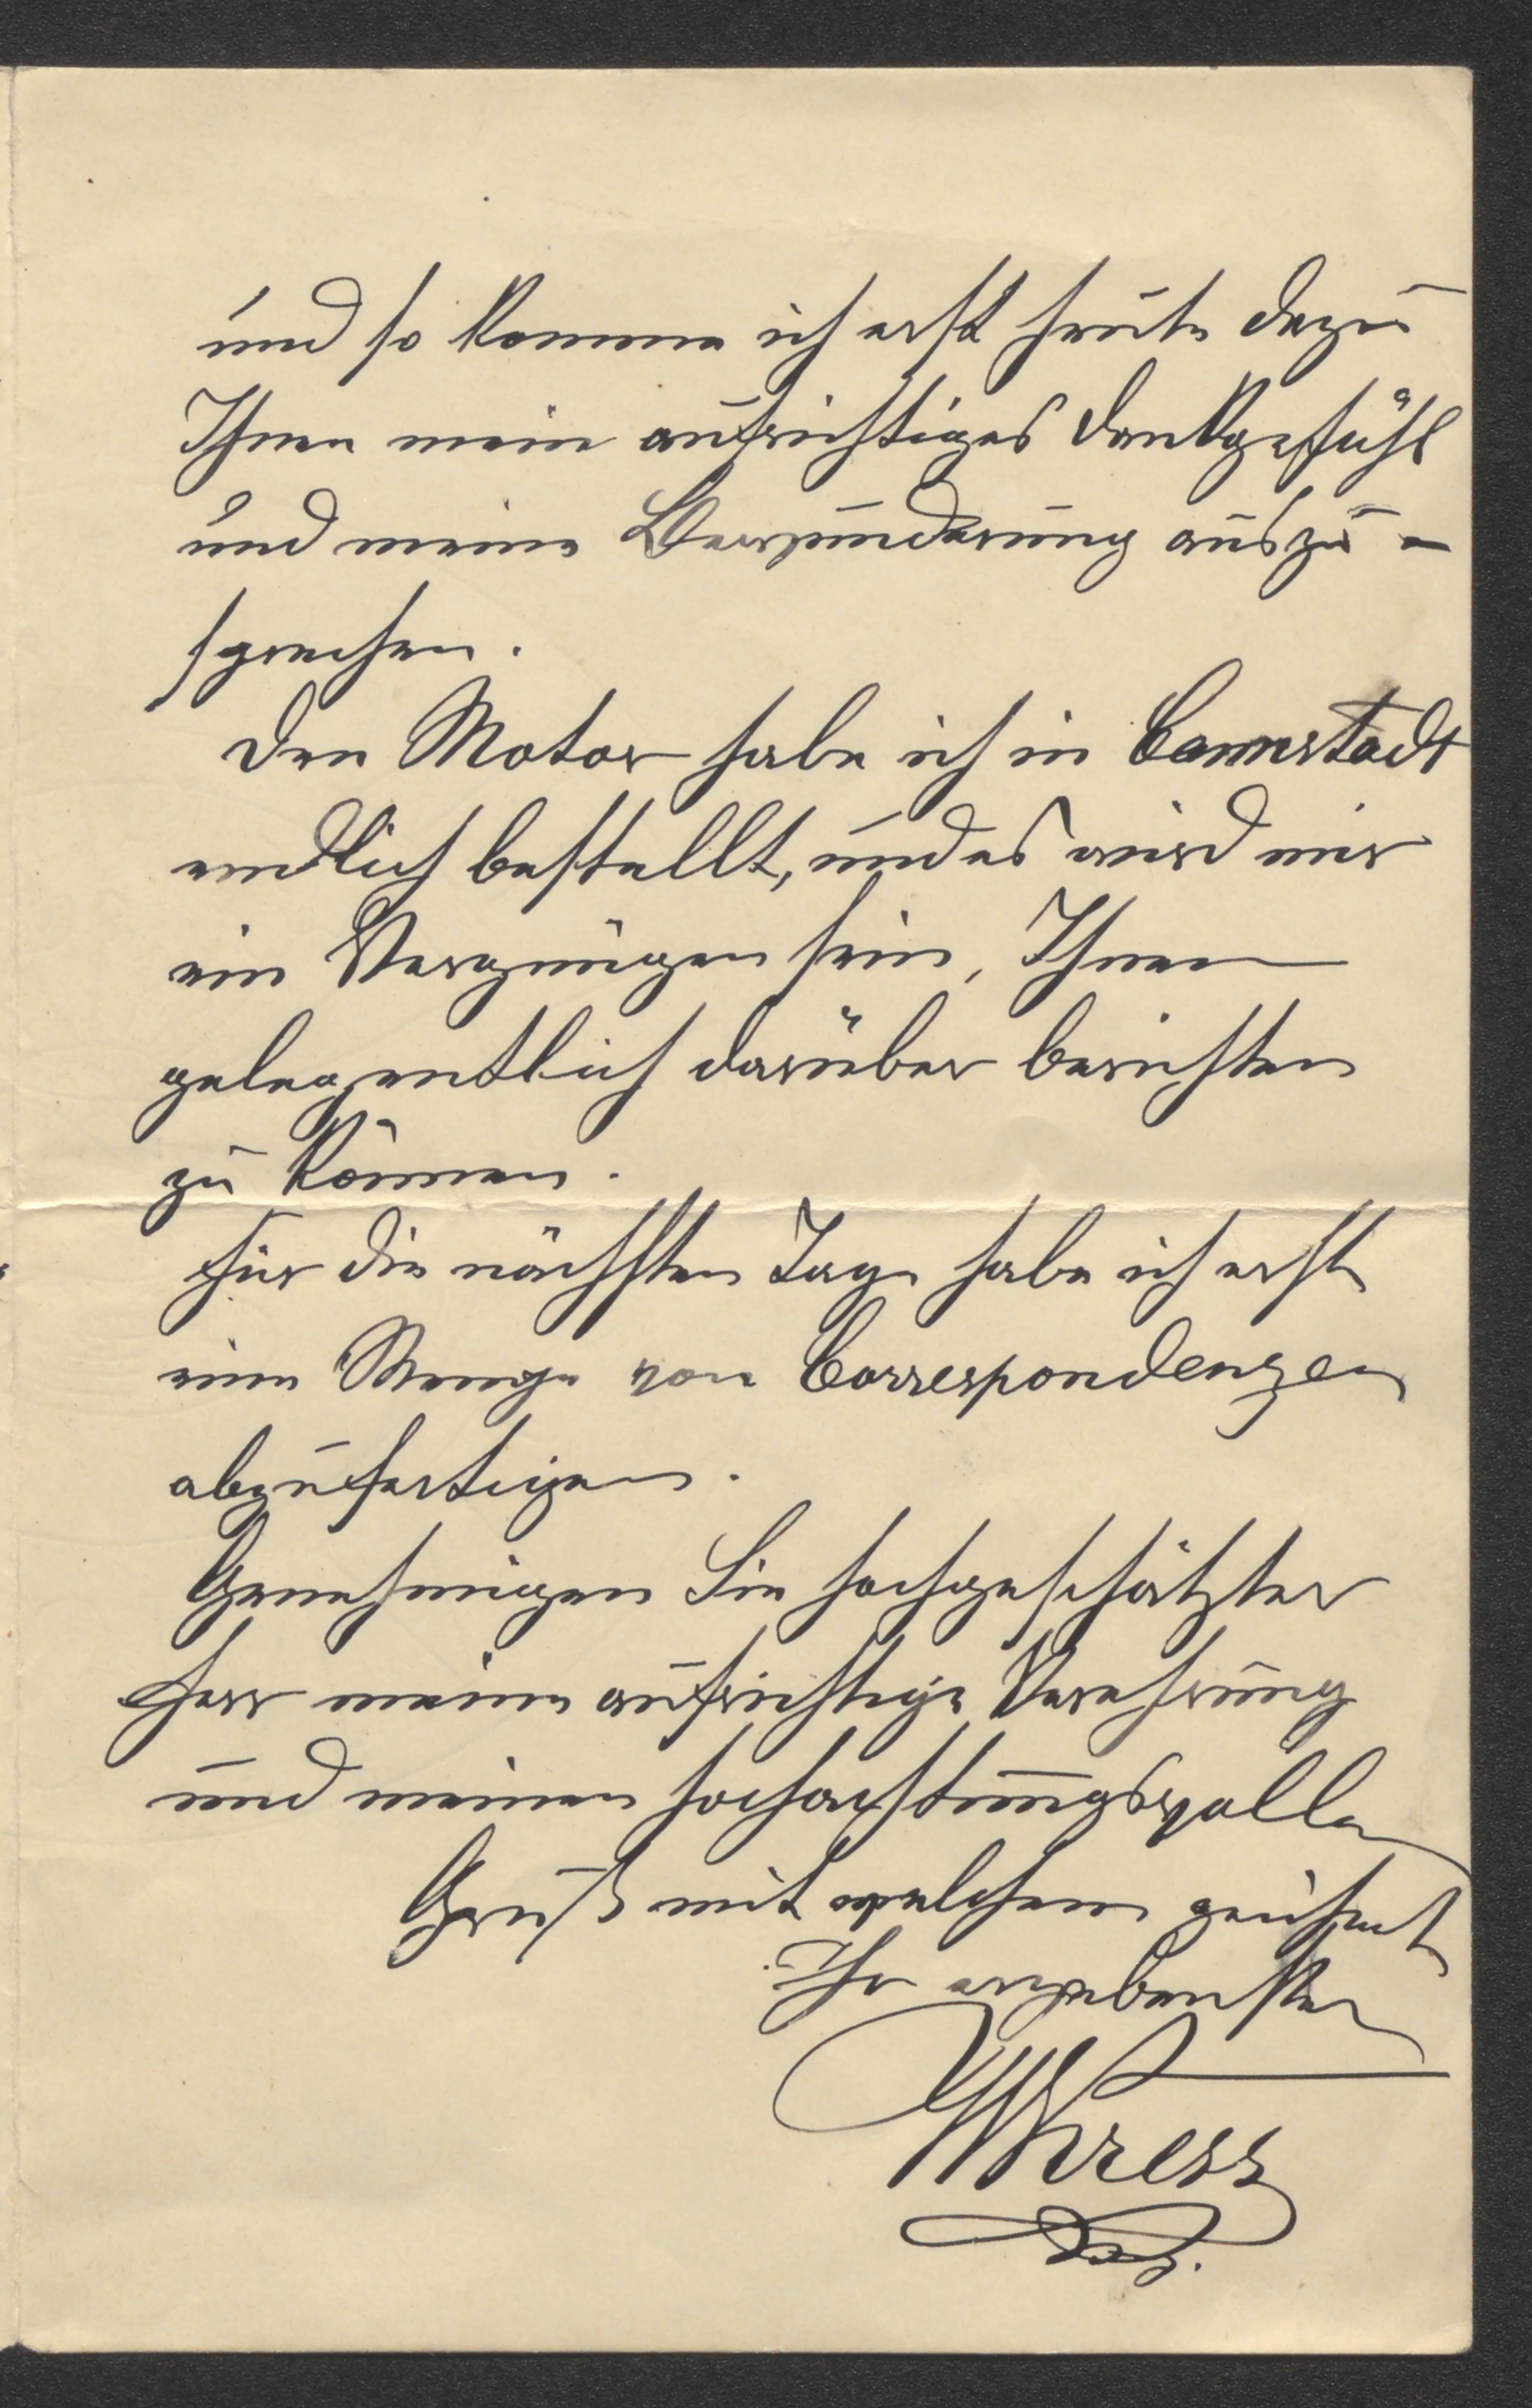 und so komme ich erst heute dazu
Ihnen mein aufrichtiges Dankgefühl
und meine Bewunderung auszu-
sprechen.
Den Motor habe ich in Cannstadt
endlich bestellt, und es wird mir
ein Vergnügen sein, Ihnen
gelegentlich darüber berichten
zu können.
Für die nächsten Tage habe ich erst
eine Menge von Correspondenzen
abzufertigen.
Genehmigen Sie hochgeschätzter
Herr meine aufrichtige Verehrung
und meinen hochachtungsvollen
Gruß mit welchem zeichnet
Ihr ergebenster
WKress